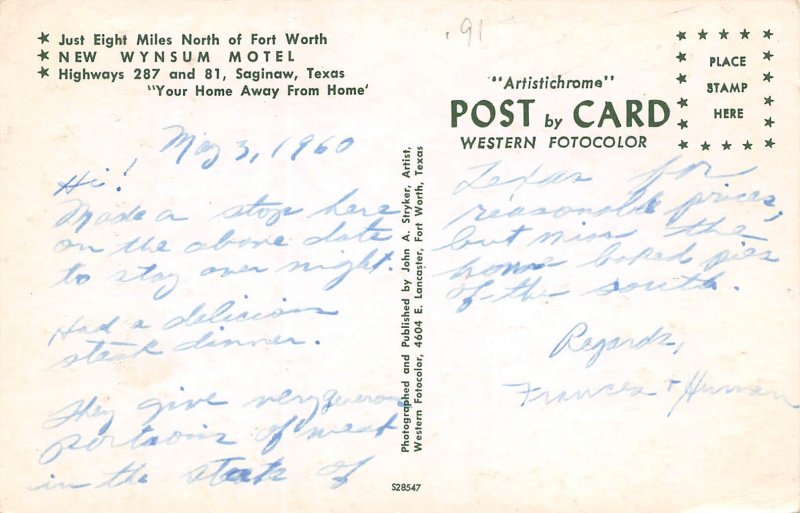 Just Eight Miles North of Fort Worth
NEW WYNSUM MOTEL
Highways 287 and 81, Saginaw, Texas
"Your Home Away From Home'
May 3, 1960
Hi!
Made a stop here
on the above date
to stay over night.
Had a delicious
steak dinner.
They give very generous
portions of meat
in the state of
Photographed and Published by John A. Stryker, Artist,
Western Fotocolor, 4604 E. Lancaster, Fort Worth, Texas
S28547
.91
"Artistichrome"
POST by CARD
WESTERN FOTOCOLOR
PLACE
STAMP
HERE
Texas for
reasonable prices,
but miss the
home baked pies
of the south.
Regards,
Frances + Herman